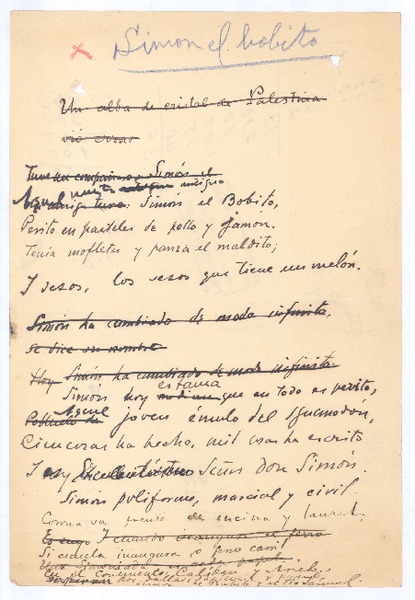 Simon el bobito
Un alba de cristal de Palestina
vió errar
Tuve un compañero Simón el
Aquel mi antiguo
amigo tuve: Simón el Bobito,
Perito en pasteles de pollo y jamón.
Tenía mofletes y panza el maldito;
Y sesos, los sesos que tiene un melón.
Simón ha cambiado de modo infinito.
Se dice su nombre
Hoy Simón ha cambiado de modo infinito.
Simón hoy estaua que en todo es perito,
Aquel joven émulo del Iguanodon,
Cien cosas ha hecho, mil cosas ha escrito
Y es Excelentísimo Señor don Simón.
Simón poliforme, marcial y civil.
Corona su frente de encina y laurel.
Es suyo Y cuando inaugura el ferro
Si adula inaugura o ferro carril
el Continente, Caliban y Ariel